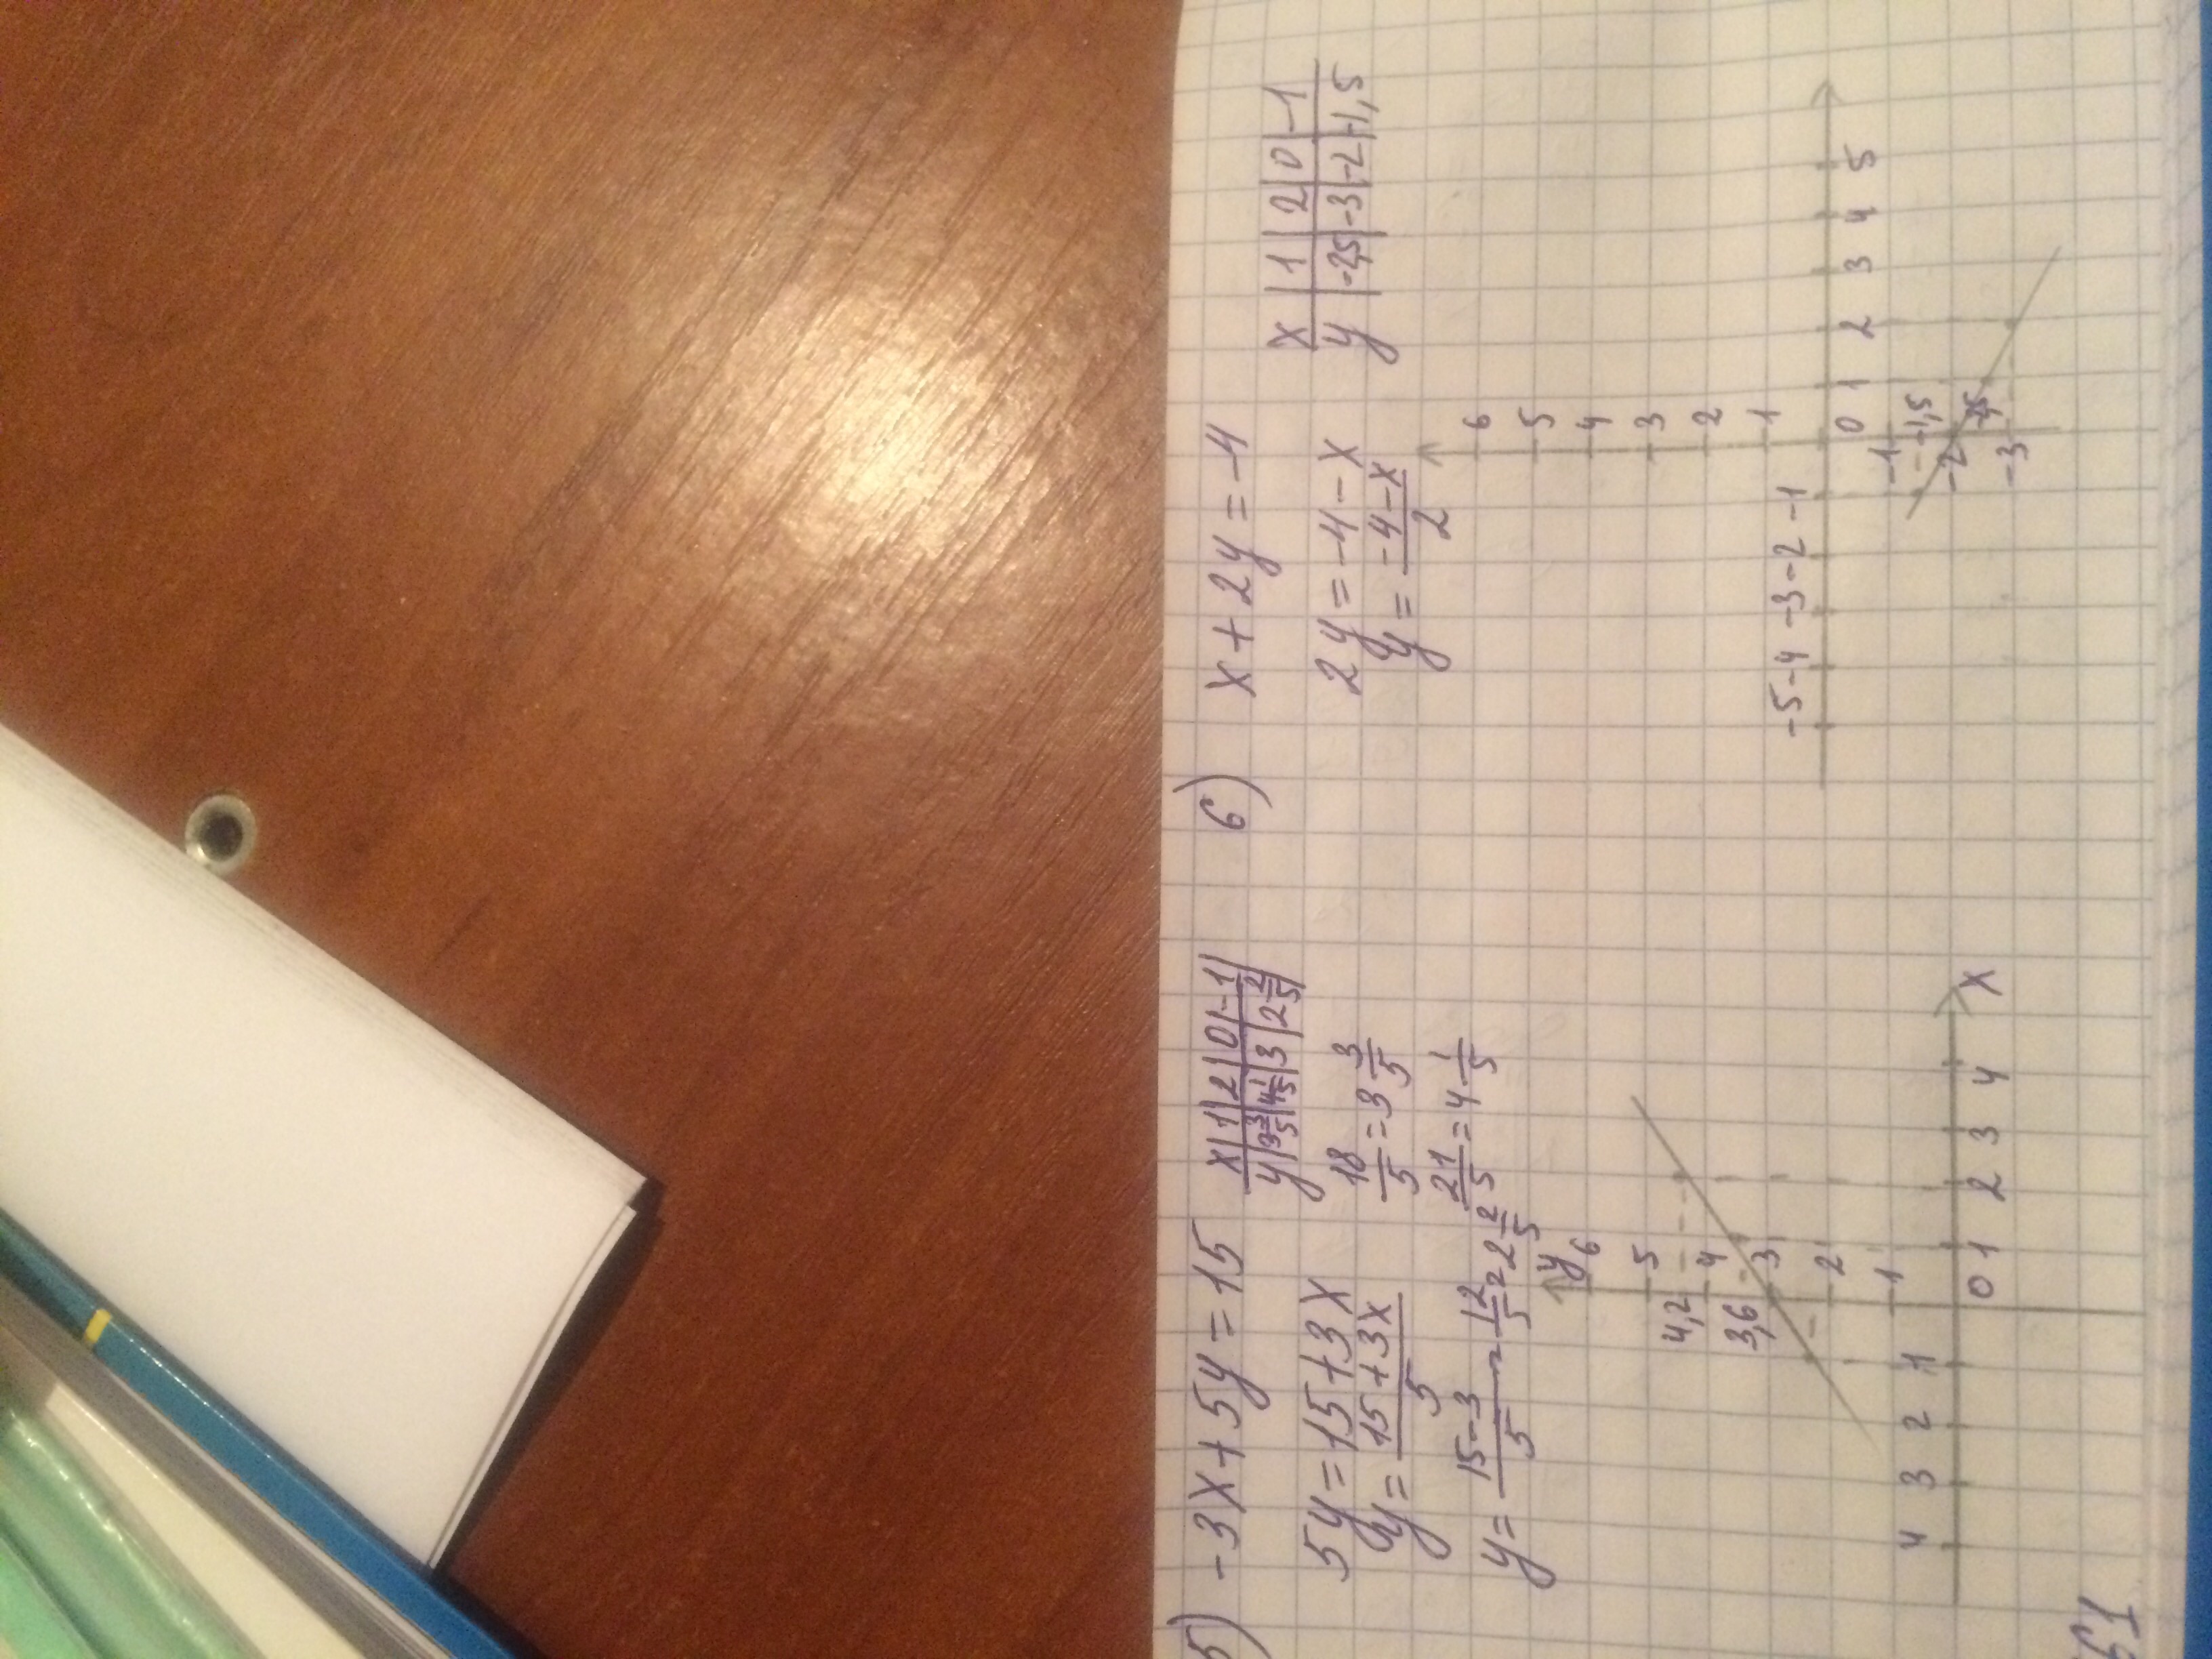 5) -3x+5y=15
x | 1 | 2 | 0 | -1
y | 3 3/5 | 4 1/5 | 3 | 2 2/5
5y=15+3x
y= (15+3x)/5
18/5 = 3 3/5
21/5 = 4 1/5
y= (15-3)/5 = 12/5 = 2 2/5
y
6
5
4,2
4
3,6
3
2
1
4 3 2 1 0 1 2 3 4 x
6) x+2y=-4
x | 1 | 2 | 0 | -1
y | -2,5 | -3 | -2 | -1,5
2y=-4-x
y= (-4-x)/2
6
5
4
3
2
1
-5 -4 -3 -2 -1 0 1 2 3 4 5
-1
-1,5
-2
-2,5
-3
61